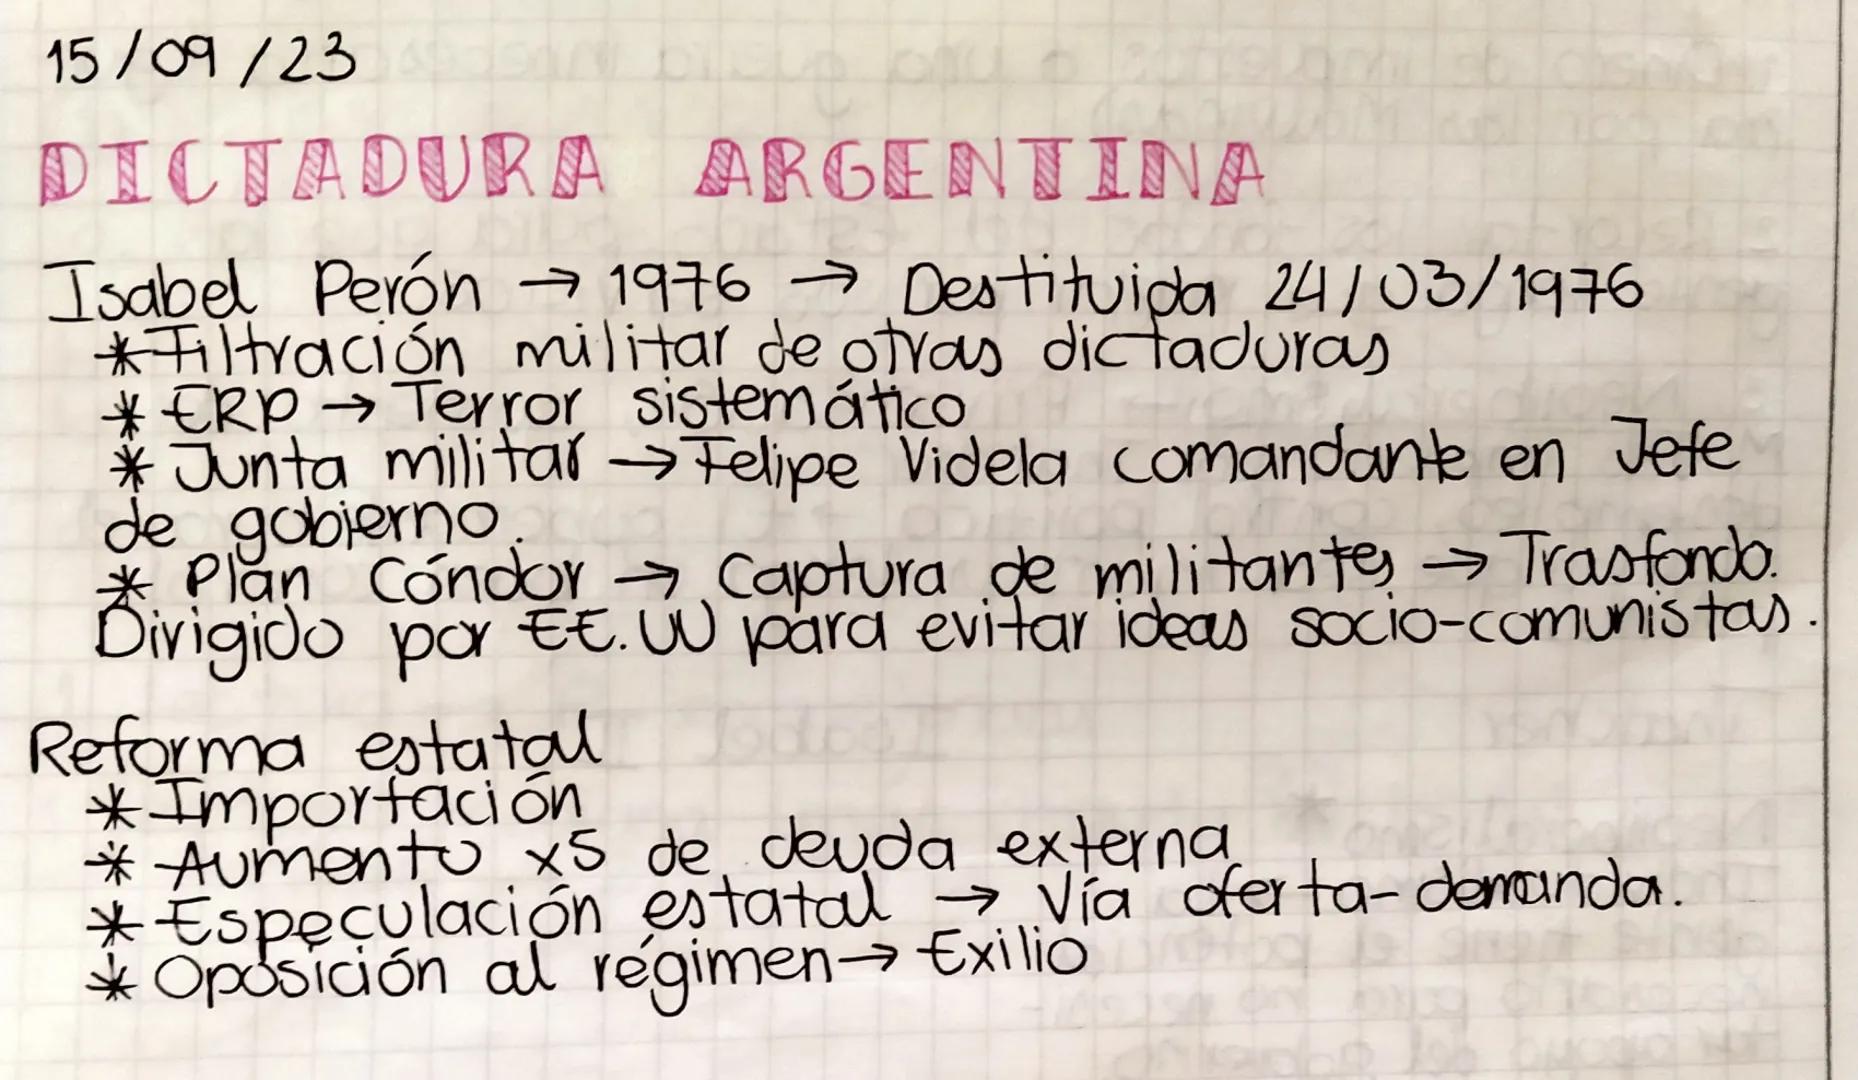 15/09/23
DICTADURA ARGENTINA
Isabel Perón → 1976 → Destituida 24/03/1976
* Filtración militar de otras dictaduras
* ERP → Terror sistemático
* Junta militar → Felipe Videla comandante en Jefe
de gobierno.
* Plan Cóndor → Captura de militantes → Trasfondo.
Dirigido por EE.UU para evitar ideas socio-comunistas.
Reforma estatal
* Importación
* Aumento x5 de deuda externa
* Especulación estatal → Vía oferta-demanda.
* Oposición al régimen → Exilio